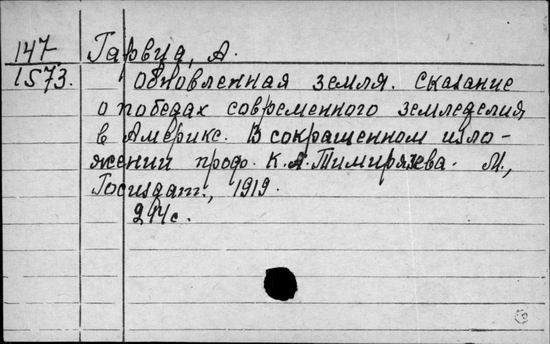 147
1573.
Гарвуд, А.
Обновленная земля. Сказание
о победах современного земледелия
в Америке. В сокращенном изло-
жении проф. К.А.Тимирязева. М.,
Госиздат., 1919.
с.